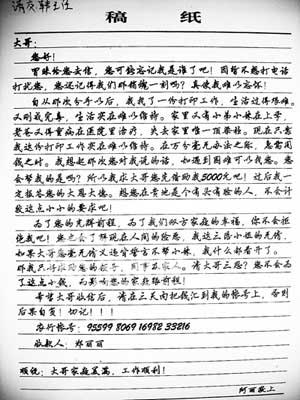 请交韩主任
稿 纸
大哥:
您好!
冒昧给您去信,您可能忘记我是谁了吧!因暂不想打电话
打扰您,您还记得我们那销魂一刻吗?真使我难以忘怀!
自从那次分手以后,我找了一份打印工作,生活过得艰难。
又刚戒完毒,生活实在难以维持。家里又有小弟小妹在上学,
老爸又得胃病在医院里治疗,失去家里唯一顶梁柱。现在只靠
我这份打印工作实在难以维持。在万分毫无办法之际,急需用
钱之时。我想起那次您对我说的话,如遇到困难可以找您。您
会帮我的是吗?所以我求大哥您先借助我5000元吧!过后我一
定报答您的大恩大德。想您在当地是个有头有脸的人,不会计
较这点小小的要求吧!
为了您的光辉前程,为了我们双方家庭的幸福,你不会拒
绝我吧!您也会了解现在人间的险恶,我这三陪小姐的无情,
如果大哥您要无情又违背誓言不帮小妹,我什么都看开了。
那我只得求助您的领导,同事和家人。请大哥三思?您不会为
了这点小钱,而影响您的家庭跟前程!
希望大哥收信后,请在三天内把钱汇到我的帐号上,否则
后果自负!切记!!!
农行帐号:95599 8069 16982 33216
收款人:郑丽丽
顺祝:大哥家庭美满,工作顺利!
阿丽敬上